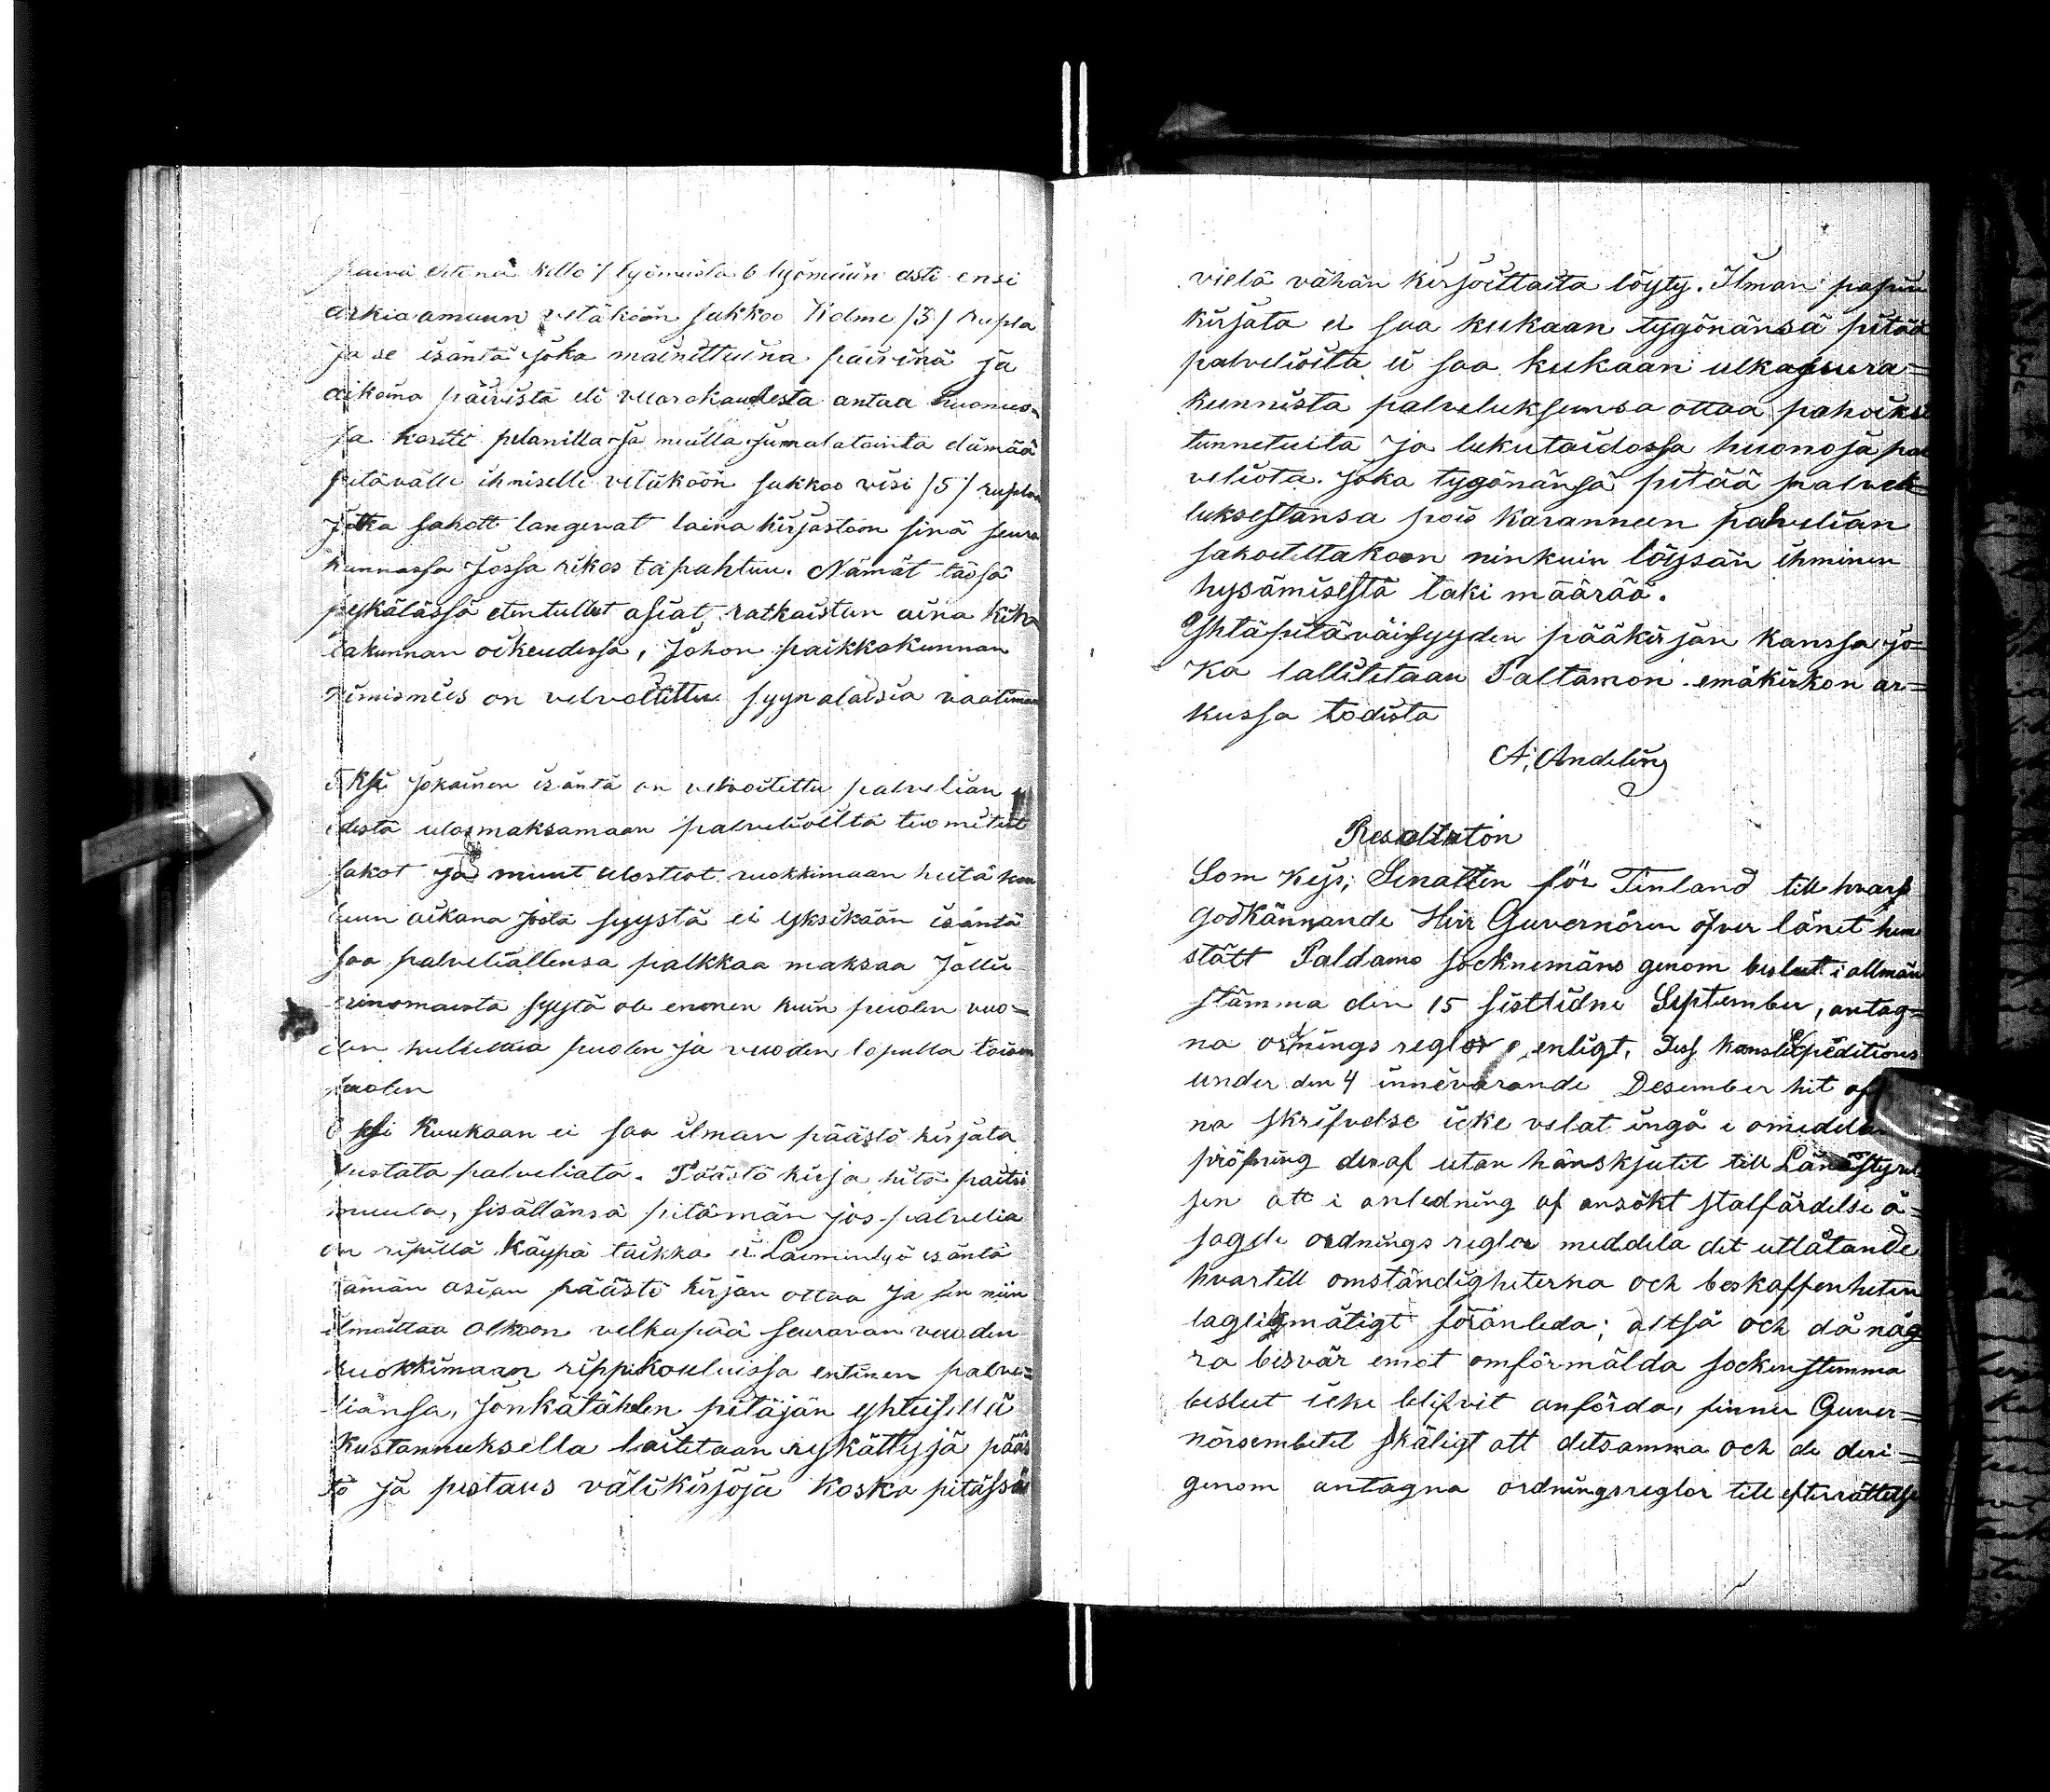 päivä ehtenä kello / lyömästä 6 lyömään asti ensi
arkiaamuun vetäköön sakkoo Kolme /3/ rupla
ja se isäntä joka mainittuina päivinä ja
aikoina päivistä eli vuorokaudesta antaa huonus=
ja kortti pelanilla ja muilla jumalatointa elämää
pitävälle ihmiselle vetäköön sakkoo wisi /5/ ruplaa
Jotka sakott langewat laina kirjastoon sinä seura
kunnassa Jossa rikos tapahtuu. Nämät täsä
pykälässä etentullet asiat ratkaistan aina kih=
lakunnan oikeudessa, Johon paikkakunnan
nimismies on velvoitittu syynalaisia vaatimaan
5 ksi Jokainen isäntä on velvoitettu palvelian
edestä ulosmaksamaan palvelioilta tuomitut
sakot ja muut ulosteot ruokkimaan heitä kou
luun aikana josta syystä ei yksikään isäntä
saa palveliallensa palkkaa maksaa Jollei
erinomaista syytä ole ennen kuin puolen vuo=
den kuluttua puolen ja vuoden lopulla toisen
puolen
6 ksi Kuukaan ei saa ilman päästö kirjata
pestata palveliata. Päästö kirja pitä paitsi
muuta, sisällänsä pitämän jos palvelia
on ripillä käypä taikka ei Laiminlyö isäntä
tämän asian päästö kirjan ottaa Ja sen niin
ilmoittaa olkoon velkapää seuravan vuoden
ruokkimaan rippikouluissa entinen palve=
liansa, Jonkatähden pitäjän yhteisellä
Kustannuksella laitetaan rykättyjä pääs
tö ja pestaus välikirjoja Koska pitäsSä
vielä vähän kirjoittaita löyty. Ilman papin
kirjata ei saa kukaan tygönänsä pitää
palvelioita ei saa kukaan ulkoseura=
kunnista palveluksensa ottaa pahoiksi
tunnetuita ja lukutaidossa huonoja pal
veliota. Joka tygönänsä pitää palvek=
luksestansa pois karanneen palvelian
sakoitettakoon ninkuin löysän ihminen
hysämisestä laki määrää.
Yhtäpitäväisyyden pääkirjan kanssa jo=
ka tallitetaan Paltamon emäkirkon ar=
kussa todista
A, Andelin
Resolution
Som Kejs; Senatten för Finland till hvars
godkännande Herr Guvernören öfver länet hem
stält Paldamo socknemäns genom beslut i allmän
stämma den 15 sistlidne September, antag=
na ornings reglor, enligt, Dess Kansliexpeditions
under den 4 innevarande Desember hit af
na skrifvelse icke velat ingå i omedelb
pröfning deraf utan hänskjutit till Länestyrel
sen att i anledning af ansökt stalfärdelse å=
sagde ordnings reglor meddela det utlåtande
hvartill omständigheterna och beskaffenheten
lagligmätigt föranleda; altså och då någ
ra besvär emot omförmälda sockenstemma
beslut icke blifvit anförda, finner Guver=
nörsembetet skäligt att detsamma och de deri=
genom antagna ordningsreglor till efterrättelse